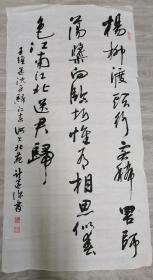 楊柳渡頭行客稀罟師
蕩槳向臨圻惟有相思似春
色江南江北送君歸
王維送沈子歸江東 北苑 書